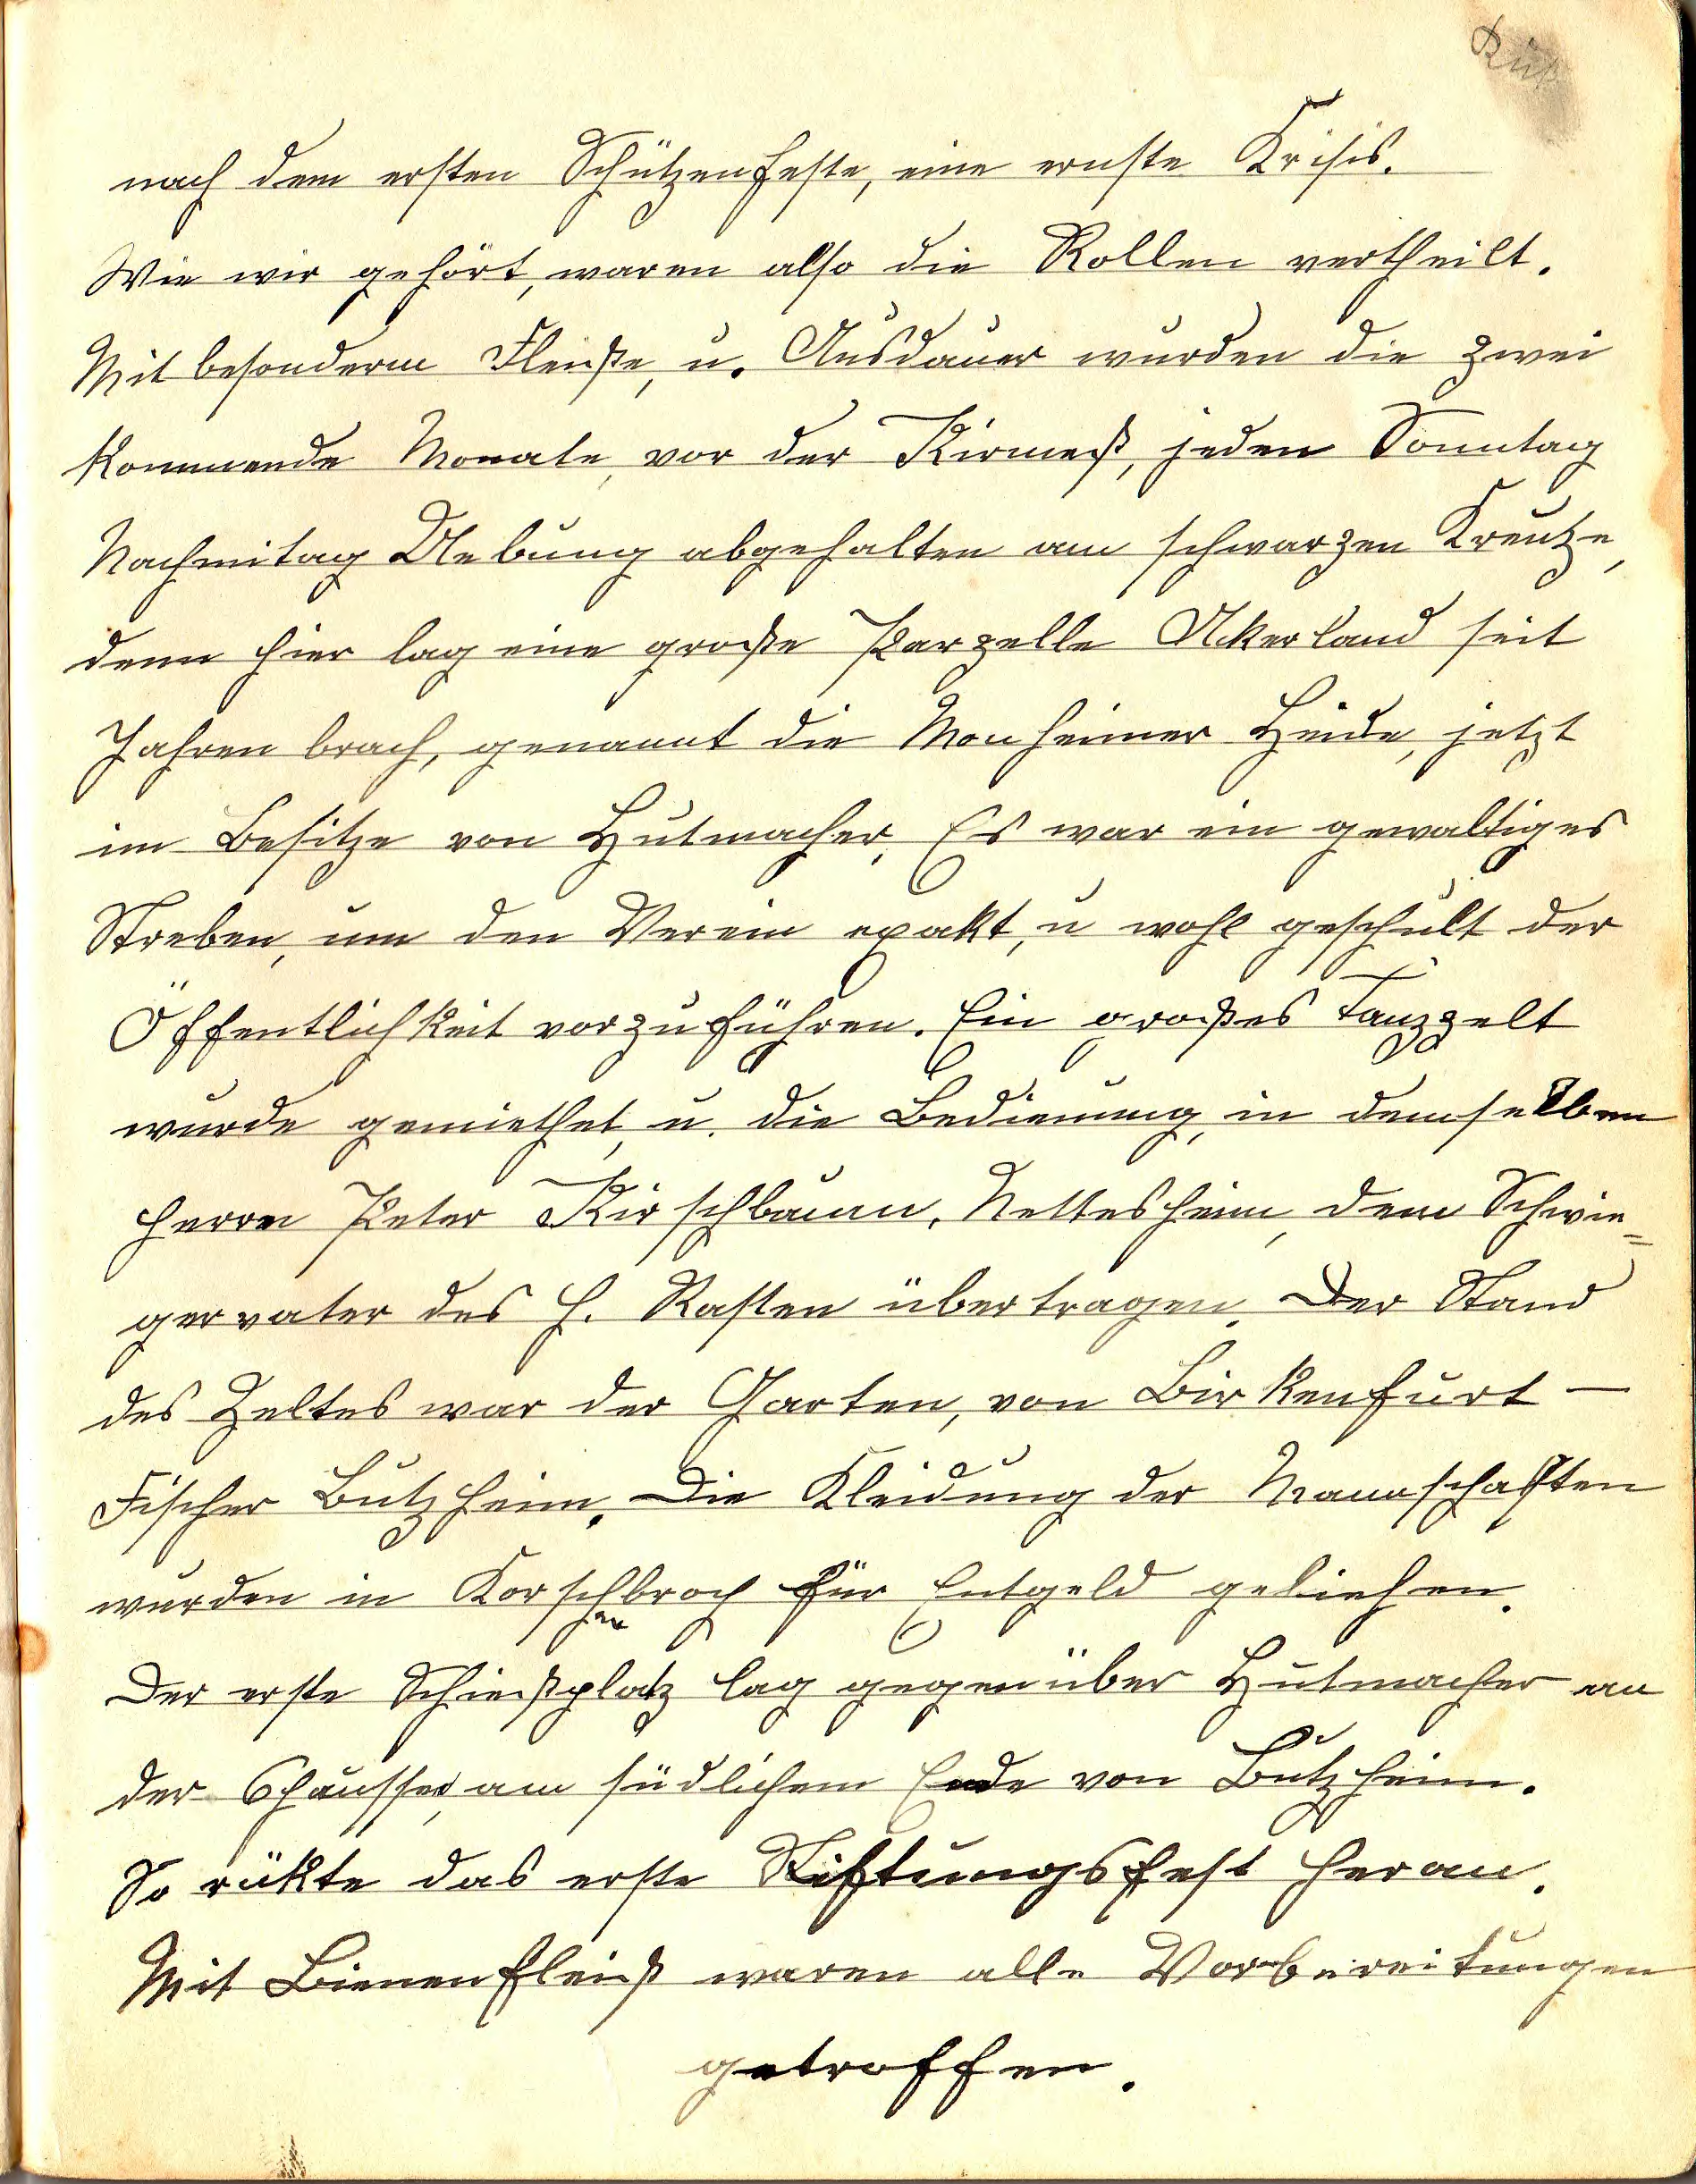 nach dem ersten Schützenfeste, eine ernste Krisis.
Wie wir gehört, waren also die Rollen vertheilt.
Mit besonderm Fleiße, u. Ausdauer wurden die zwei
kommende Monate, vor der Kirmeß, jeden Sonntag
Nachmitag Uebung abgehalten am schwarzen Kreutze,
denn hier lag eine große Parzelle Akerland seit
Jahren brach, genannt die Monheimer Heide, jetzt
im Besitze von Hutmacher. Es war ein gewaltiges
Streben, um den Verein exakt, u wohl geschult der
Öffentlichkeit vorzuführen. Ein großes Tanzzelt
wurde gemiethet, u. die Bedienung, in demselben
Herrn Peter Kirschbaum. Nettesheim, dem Schwie=
gervater des H. Rasten übertragen. Der Stand
des Zeltes war der Garten, von Birkenfurt —
Fischer Butzheim. Die Kleidung der Mannschaften
wurden in Korschenbroch für Entgeld geliehen.
Der erste Schießplatz lag gegenüber Hutmacher an
der Chaussee, am südlichem Ende von Butzheim.
So rükte das erste Stiftungsfest heran.
Mit Bienenfleiß waren alle Vorbereitungen
getroffen.